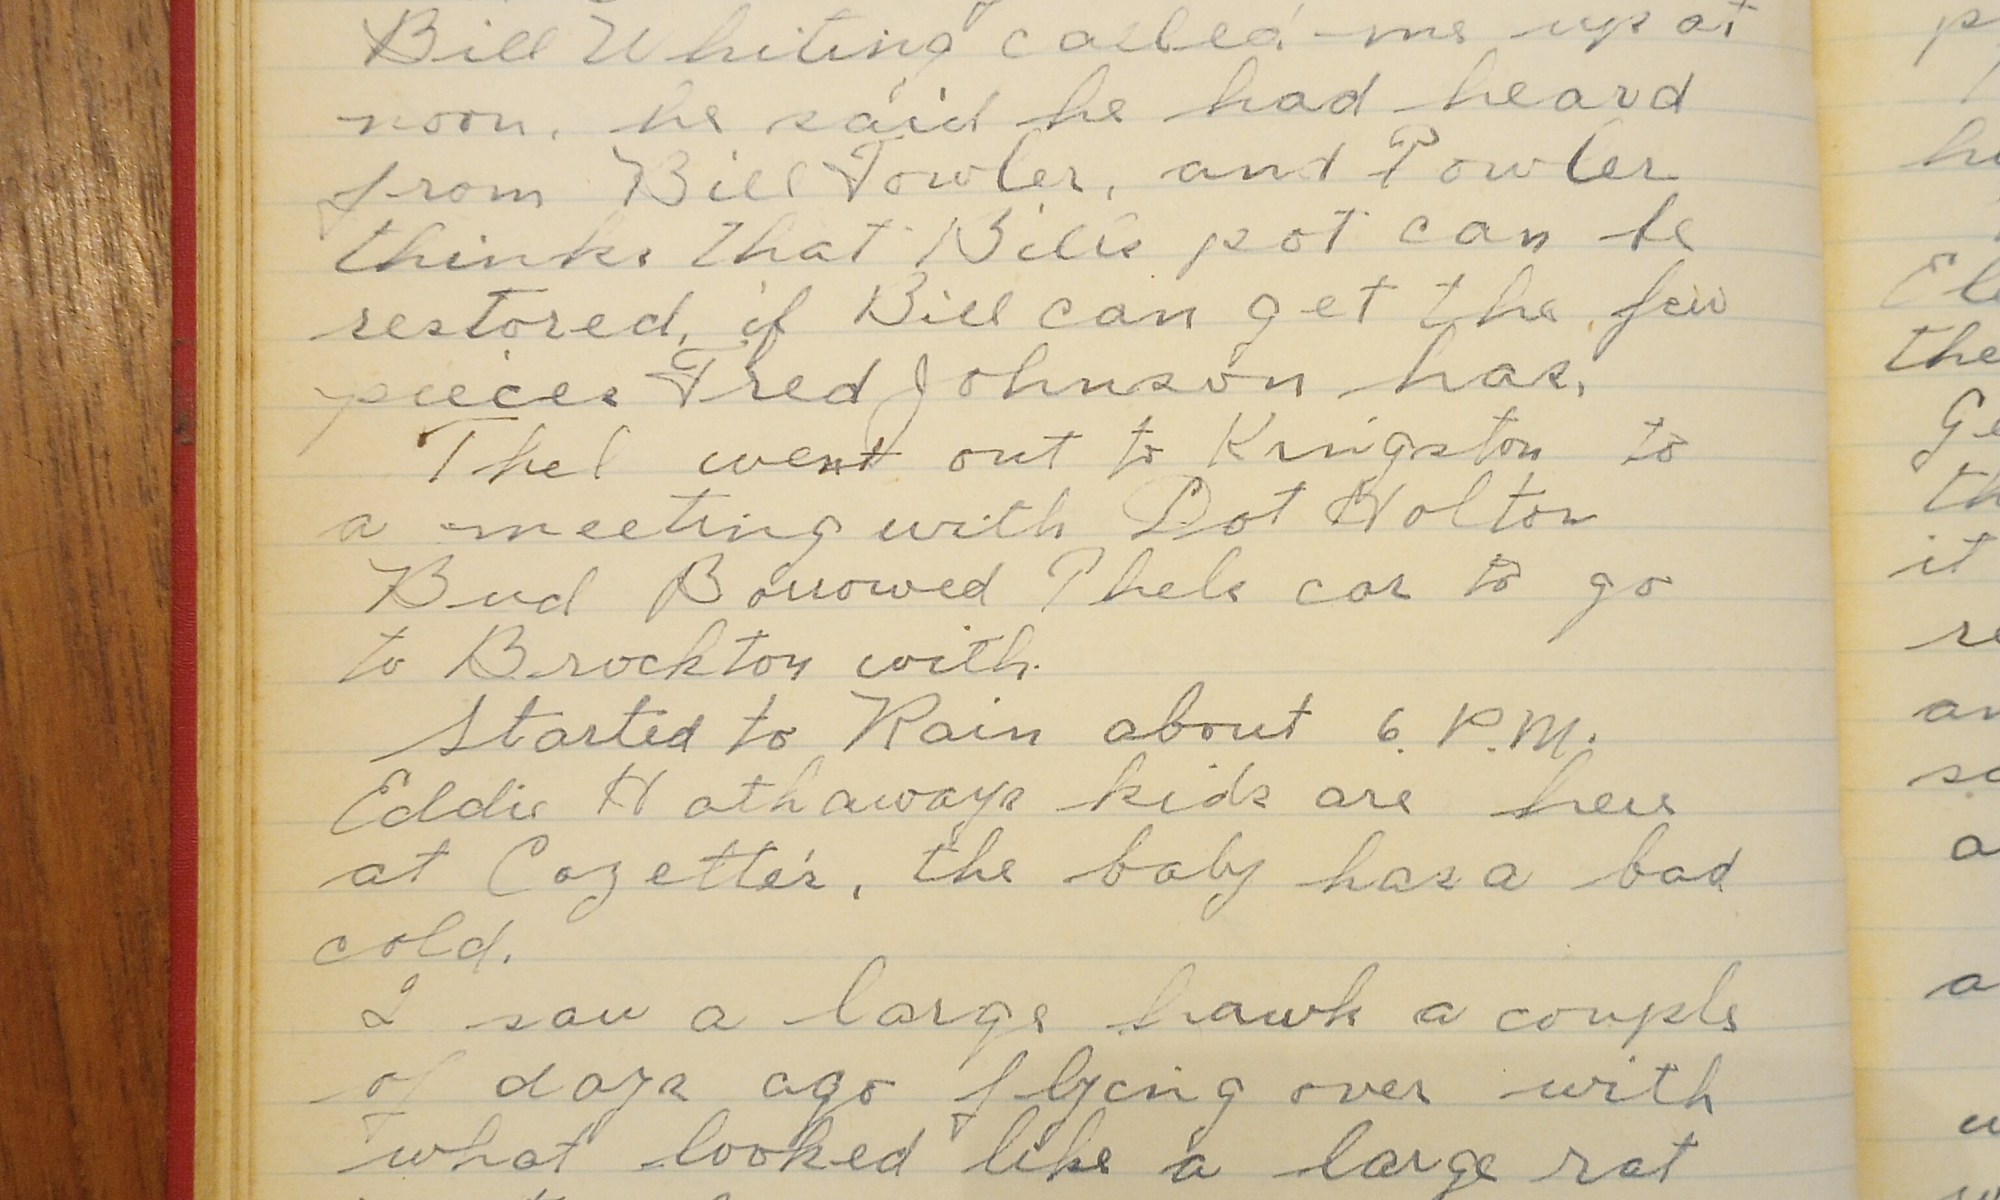 Bill Whiting called me up at
noon, he said he had heard
from Bill Fowler, and Fowler
thinks that Bills pot can be
restored, if Bill can get the few
pieces Fred Johnson has.
Thel went out to Kingston to
a meeting with Dot Holton
Bud Borrowed Thels car to go
to Brockton with.
Started to Rain about 6. P.M.
Eddie Hathaways kids are here
at Cozette's, the baby has a bad
cold.
I saw a large hawk a couple
of days ago flying over with
what looked like a large rat
Ele
the
Ge
th
it
re
an
so
a
a